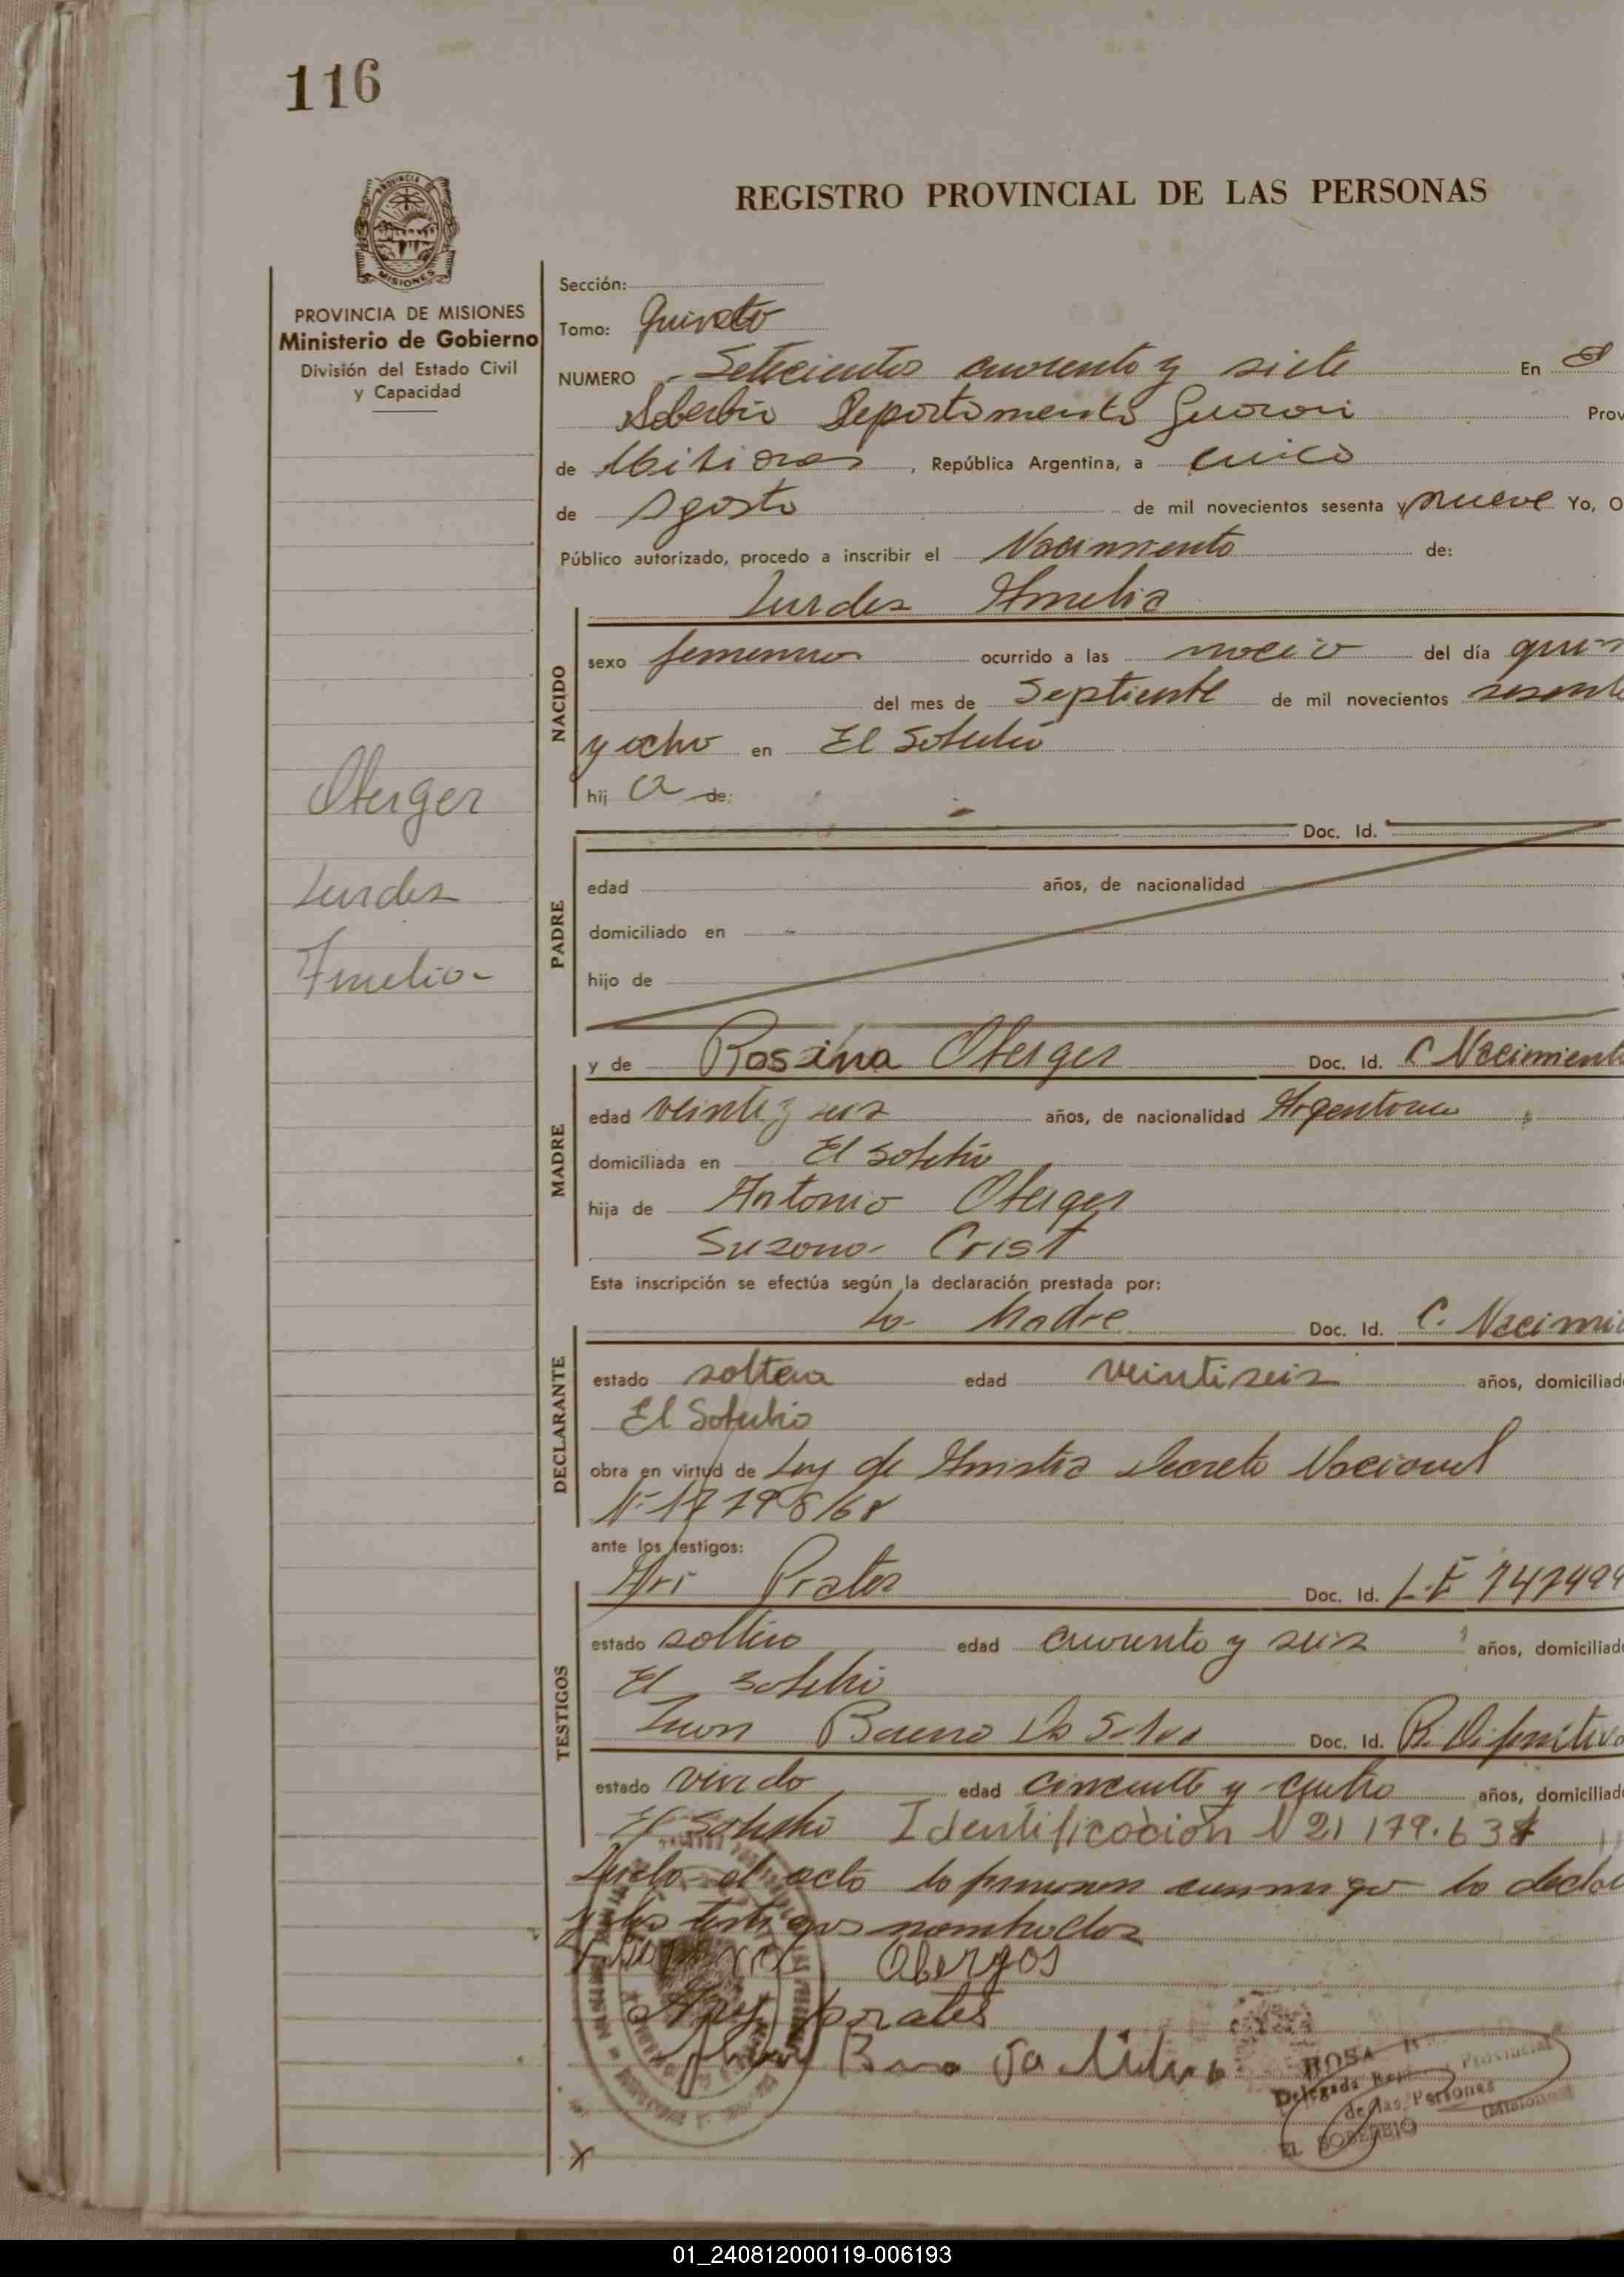 116
PROVINCIA DE
MISIONES
REGISTRO PROVINCIAL DE LAS PERSONAS
PROVINCIA DE MISIONES
Ministerio de Gobierno
División del Estado Civil
y Capacidad
Oberger
Lurdes
Amelia-
Sección:
Tomo: Quinto
NUMERO Setecientos cuarenta y siete En El
Soberbio Departamento Guarani Prov
de Misiones, República Argentina, a cinco
de Agosto de mil novecientos sesenta y nueve Yo, O
Público autorizado, procedo a inscribir el Nacimiento de:
Lurdes Amelia
NACIDO
sexo femenino ocurrido a las del día quin
del mes de Septiembre de mil novecientos sesenta
y ocho en El Soberbio
hij a de:
PADRE
Doc. Id.
edad años, de nacionalidad
domiciliado en
hijo de
MADRE
y de Rosina Oberger Doc. Id. C Nacimiento
edad veinti y seis años, de nacionalidad Argentina
domiciliada en El Soberbio
hija de Antonio Oberger
Susana- Crist
Esta inscripción se efectúa según la declaración prestada por:
DECLARANTE
La Madre Doc. Id. C. Nacimie
estado soltera edad veintiseis años, domiciliad
El Soberbio
obra en virtud de Ley de Amistia Decreto Nacional
Nº 17798/68
ante los testigos:
TESTIGOS
Ari Prates Doc. Id. L.E 747494
estado soltero edad cuarenta y seis años, domiciliad
El Soberbio
Juan Bueno Da Silva Doc. Id. R. Difinitiva
estado viudo edad cincuenta y cuatro años, domiciliad
El Soberbio Identificación N 21 179.637
Leida el acta la firman conmigo la decla
y los testigos nombrados
Obergos
Ary prates
Bueno Da Silva
ROSA
Delegada Registro Provincial
de las Personas
EL SOBERBIO (Misiones)
01_240812000119-006193